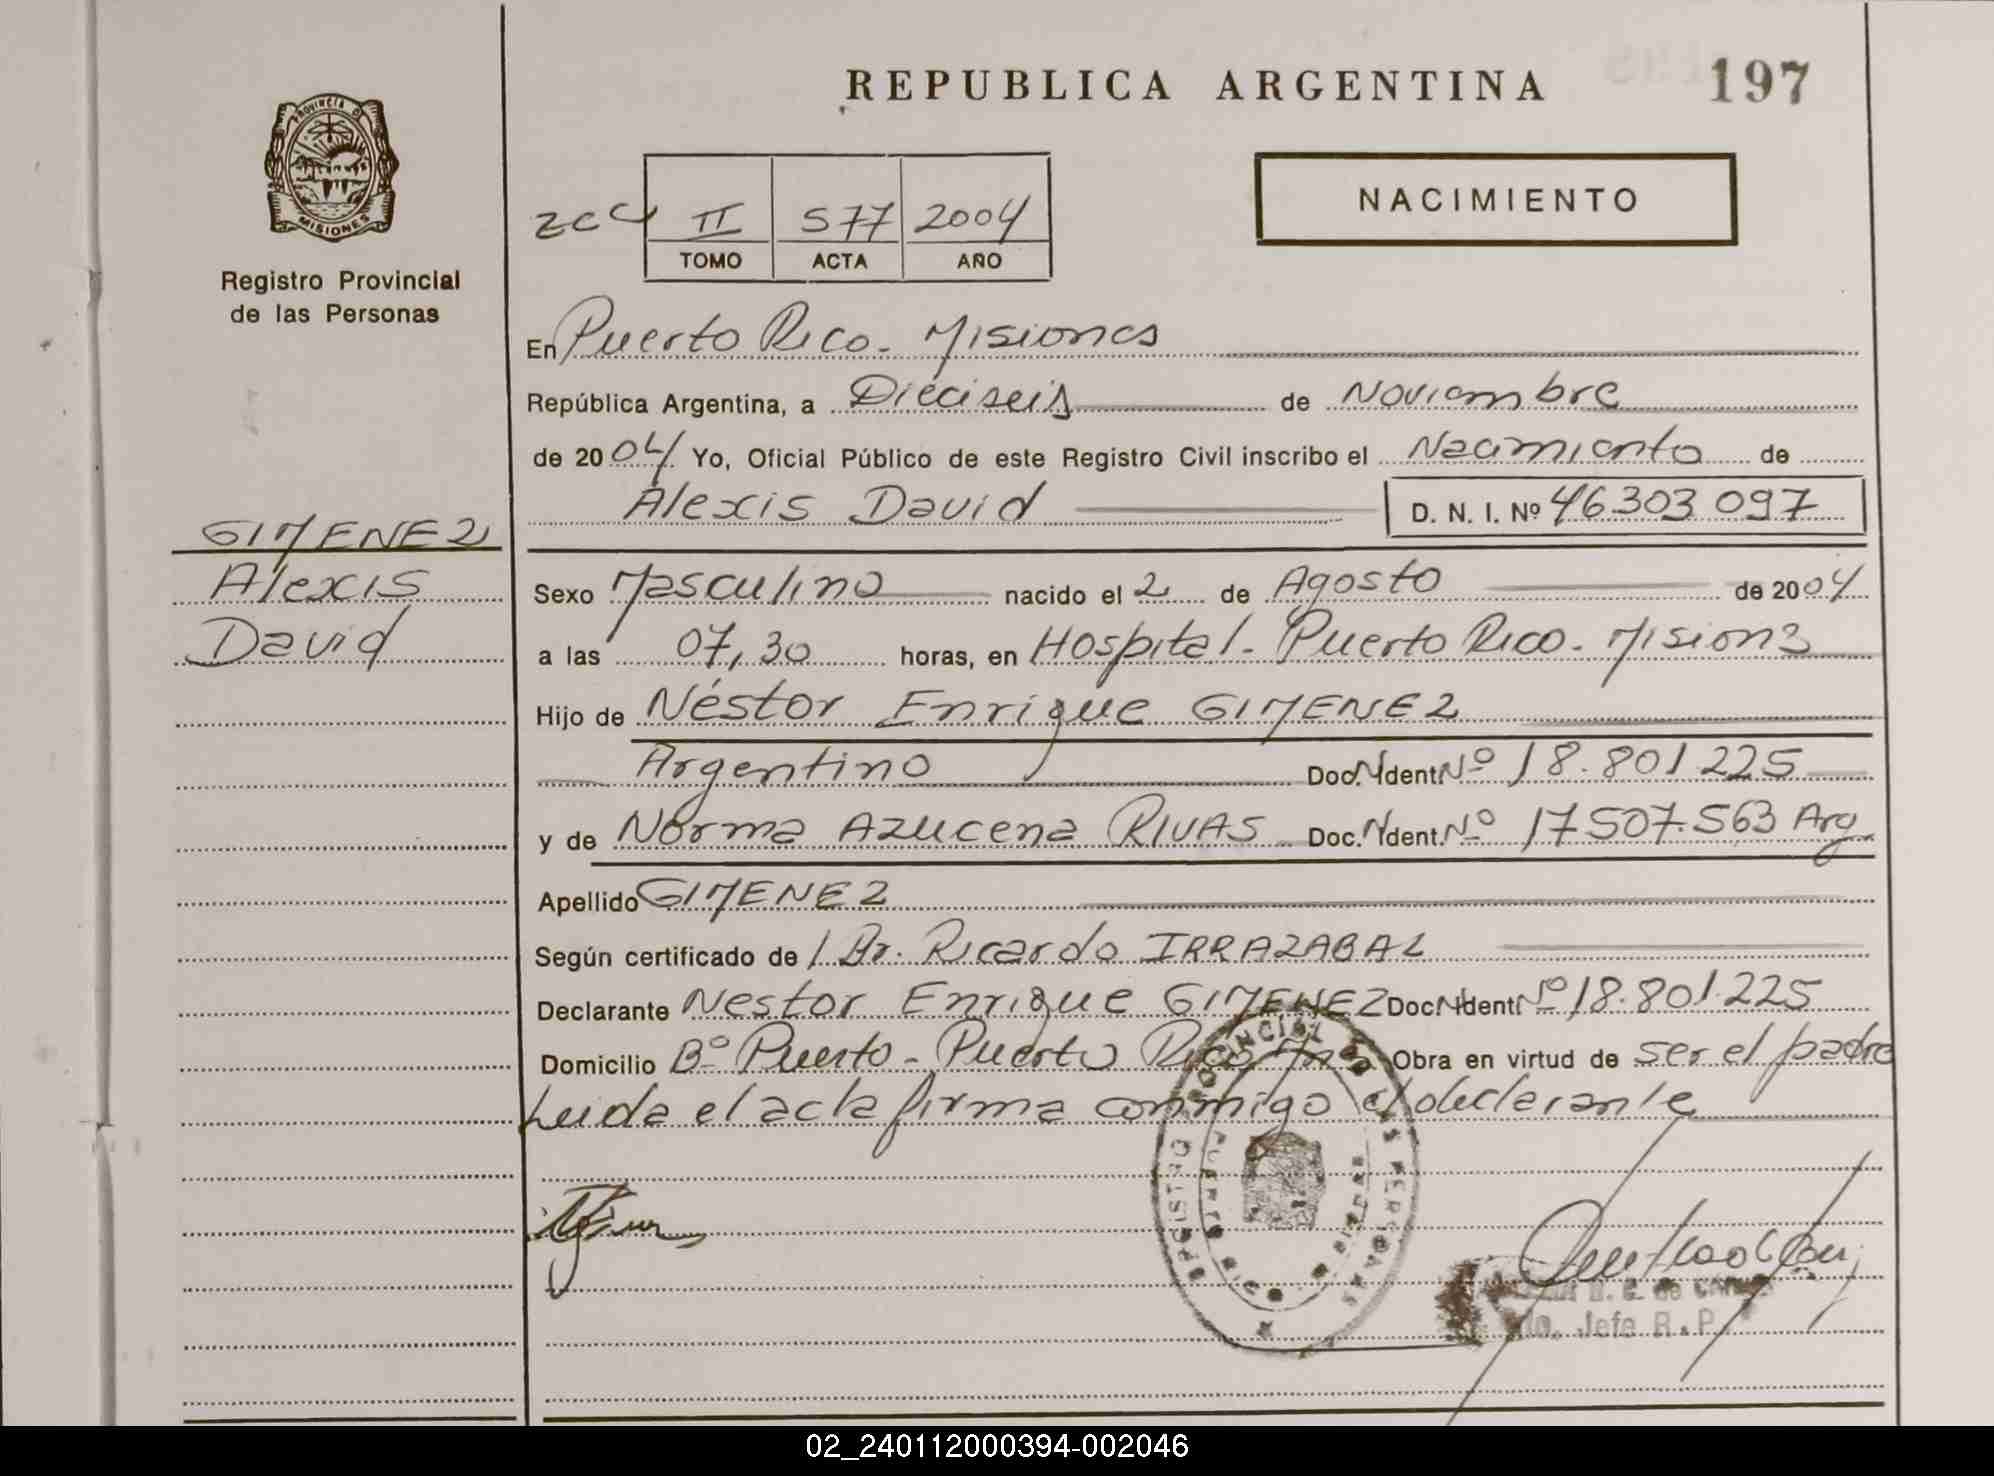 REPUBLICA ARGENTINA
197
PROVINCIA D MISIONES
Registro Provincial
de las Personas
NACIMIENTO
II 577 2004
TOMO ACTA AÑO
En Puerto Rico. Misiones
República Argentina, a Dieciseis de Noviembre
de 2004 Yo, Oficial Público de este Registro Civil inscribo el Nacimiento de
Alexis David D. N. I. Nº 46.303.097
GIMENEZ
Alexis
David
Sexo Masculino nacido el 2 de Agosto de 2004
a las 07,30 horas, en Hospital - Puerto Rico. Misiones
Hijo de Néstor Enrique GIMENEZ
Argentino Doc. N Ident. Nº 18.801.225
y de Norma Azucena RIVAS Doc. N Ident. Nº 17.507.563 Arg.
Apellido GIMENEZ
Según certificado de l Dr. Ricardo IRRAZABAL
Declarante Nestor Enrique GIMENEZ Doc. N Ident. Nº 18.801.225
Domicilio Bº Puerto - Puerto Rico Mnes Obra en virtud de ser el padre
Leida el acta firma conmigo el declarante
REGISTRO PROVINCIAL DE LAS PERSONAS
PUERTO RICO MISIONES
Jefe R.P.
02_240112000394-002046